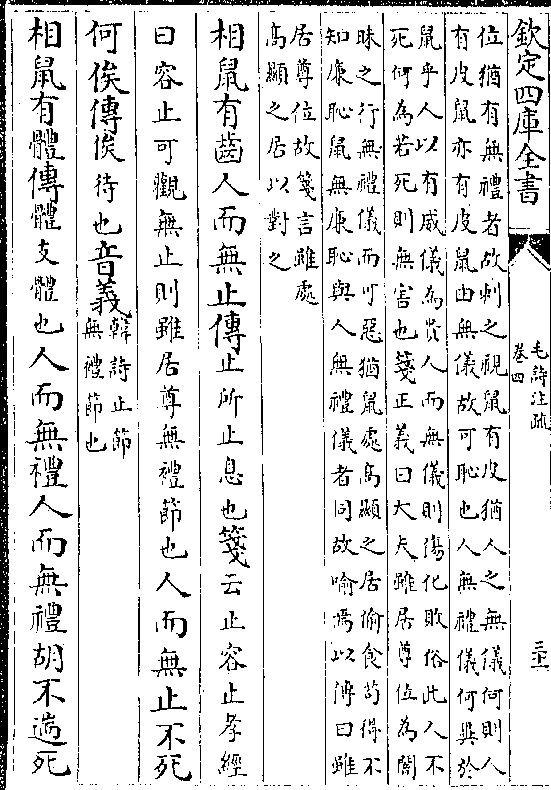 欽定四庫全書
毛詩注疏
卷四
位猶有無禮者故刺之視鼠有皮猶人之無儀何則人
有皮鼠亦有皮鼠由無儀故可恥也人無禮儀何異於
鼠乎人以有威儀為貴人而無儀則傷化敗俗此人不
死何為若死則無害也箋正義曰大夫雖居尊位為闇
昧之行無禮儀而可惡猶鼠處高顯之居偷食茍得不
知廉恥鼠無廉恥與人無禮儀者同故喻焉以傳曰雖
居尊位故箋言雖處
高顯之居以對之
相鼠有齒人而無止傳止所止息也箋云止容止孝經
曰容止可觀無止則雖居尊無禮節也人而無止不死
何俟傳俟待也音義韓詩止節
無禮節也
相鼠有體傳體支體也人而無禮人而無禮胡不遄死